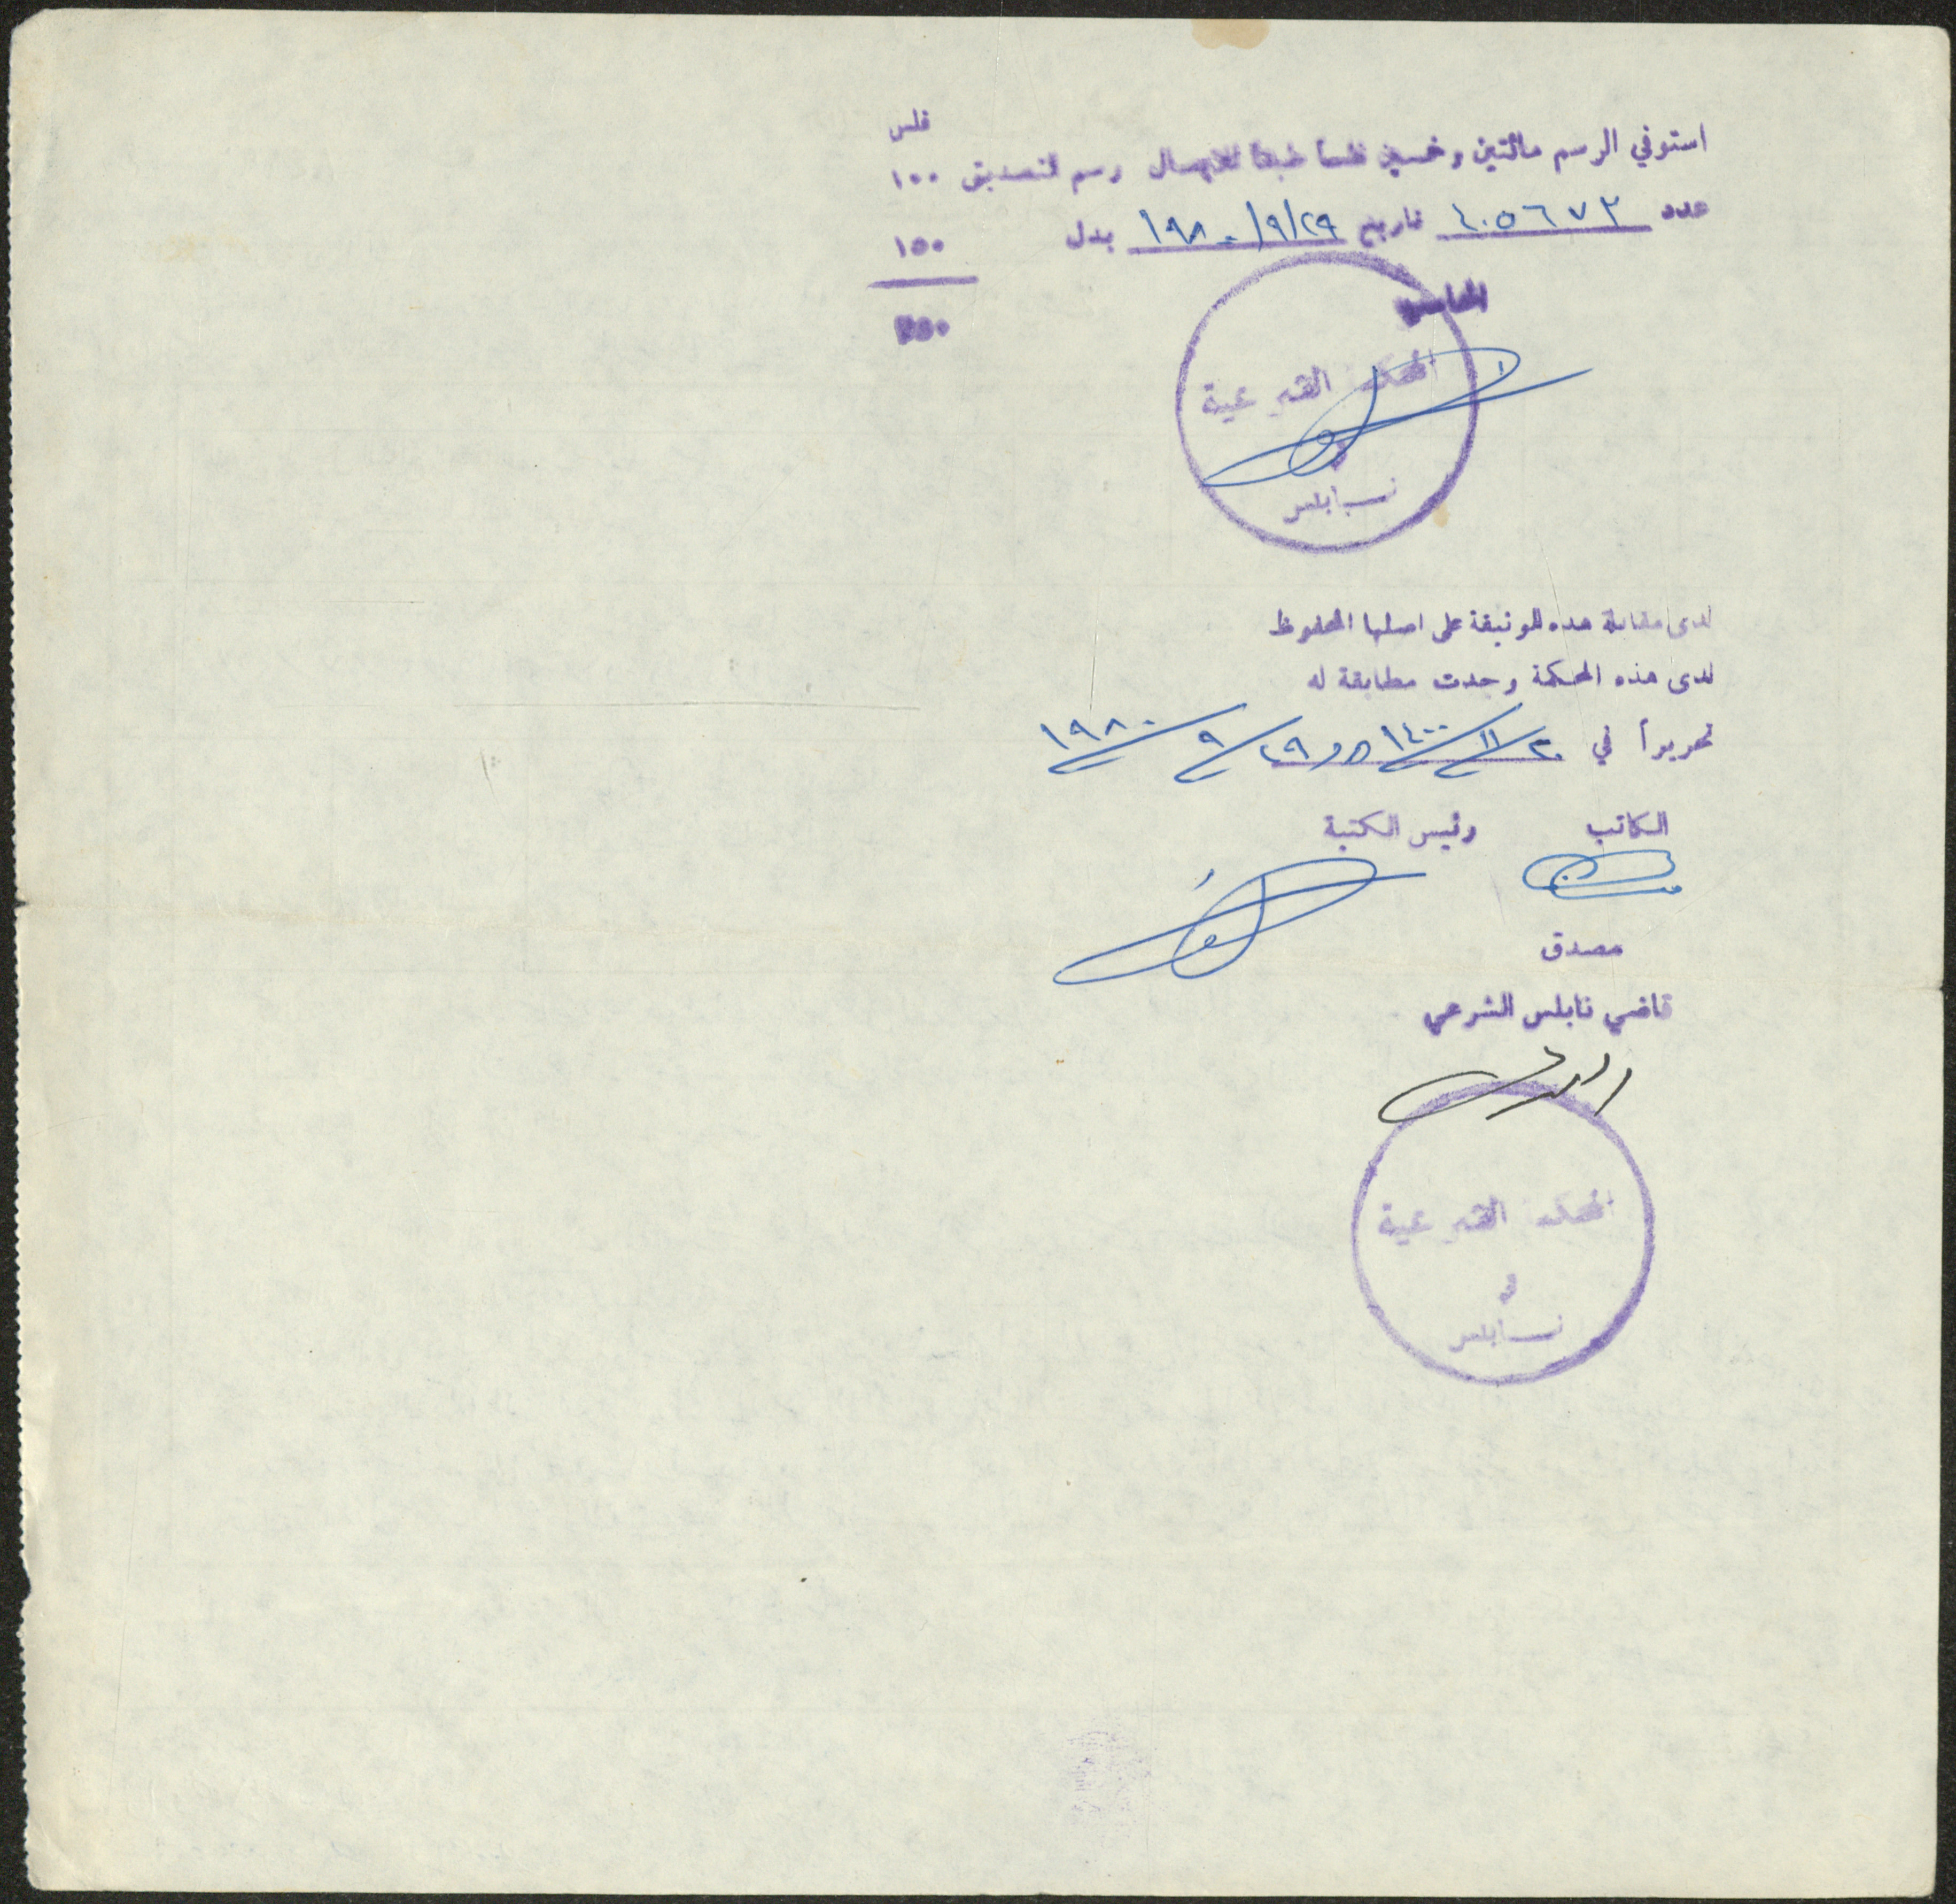 فلس
استوفي الرسم مائتين وخمسين فلساً طبقاً للايصال رسم تصديق ١٠٠
عدد ٤٠٥٦٧٢ تاريخ ١٩٨٠/٩/٢٩ بدل ١٥٠
٢٥٠
المحاسب
المحكمة الشرعية
نابلس
لدى مقابلة هذه الوثيقة على اصلها المحفوظ
لدى هذه المحكمة وجدت مطابقة له
تحريراً في ٢٠/١١/١٤٠٠ ٢٩/٩/١٩٨٠
الكاتب رئيس الكتبة
مصدق
قاضي نابلس الشرعي
المحكمة الشرعية
نابلس